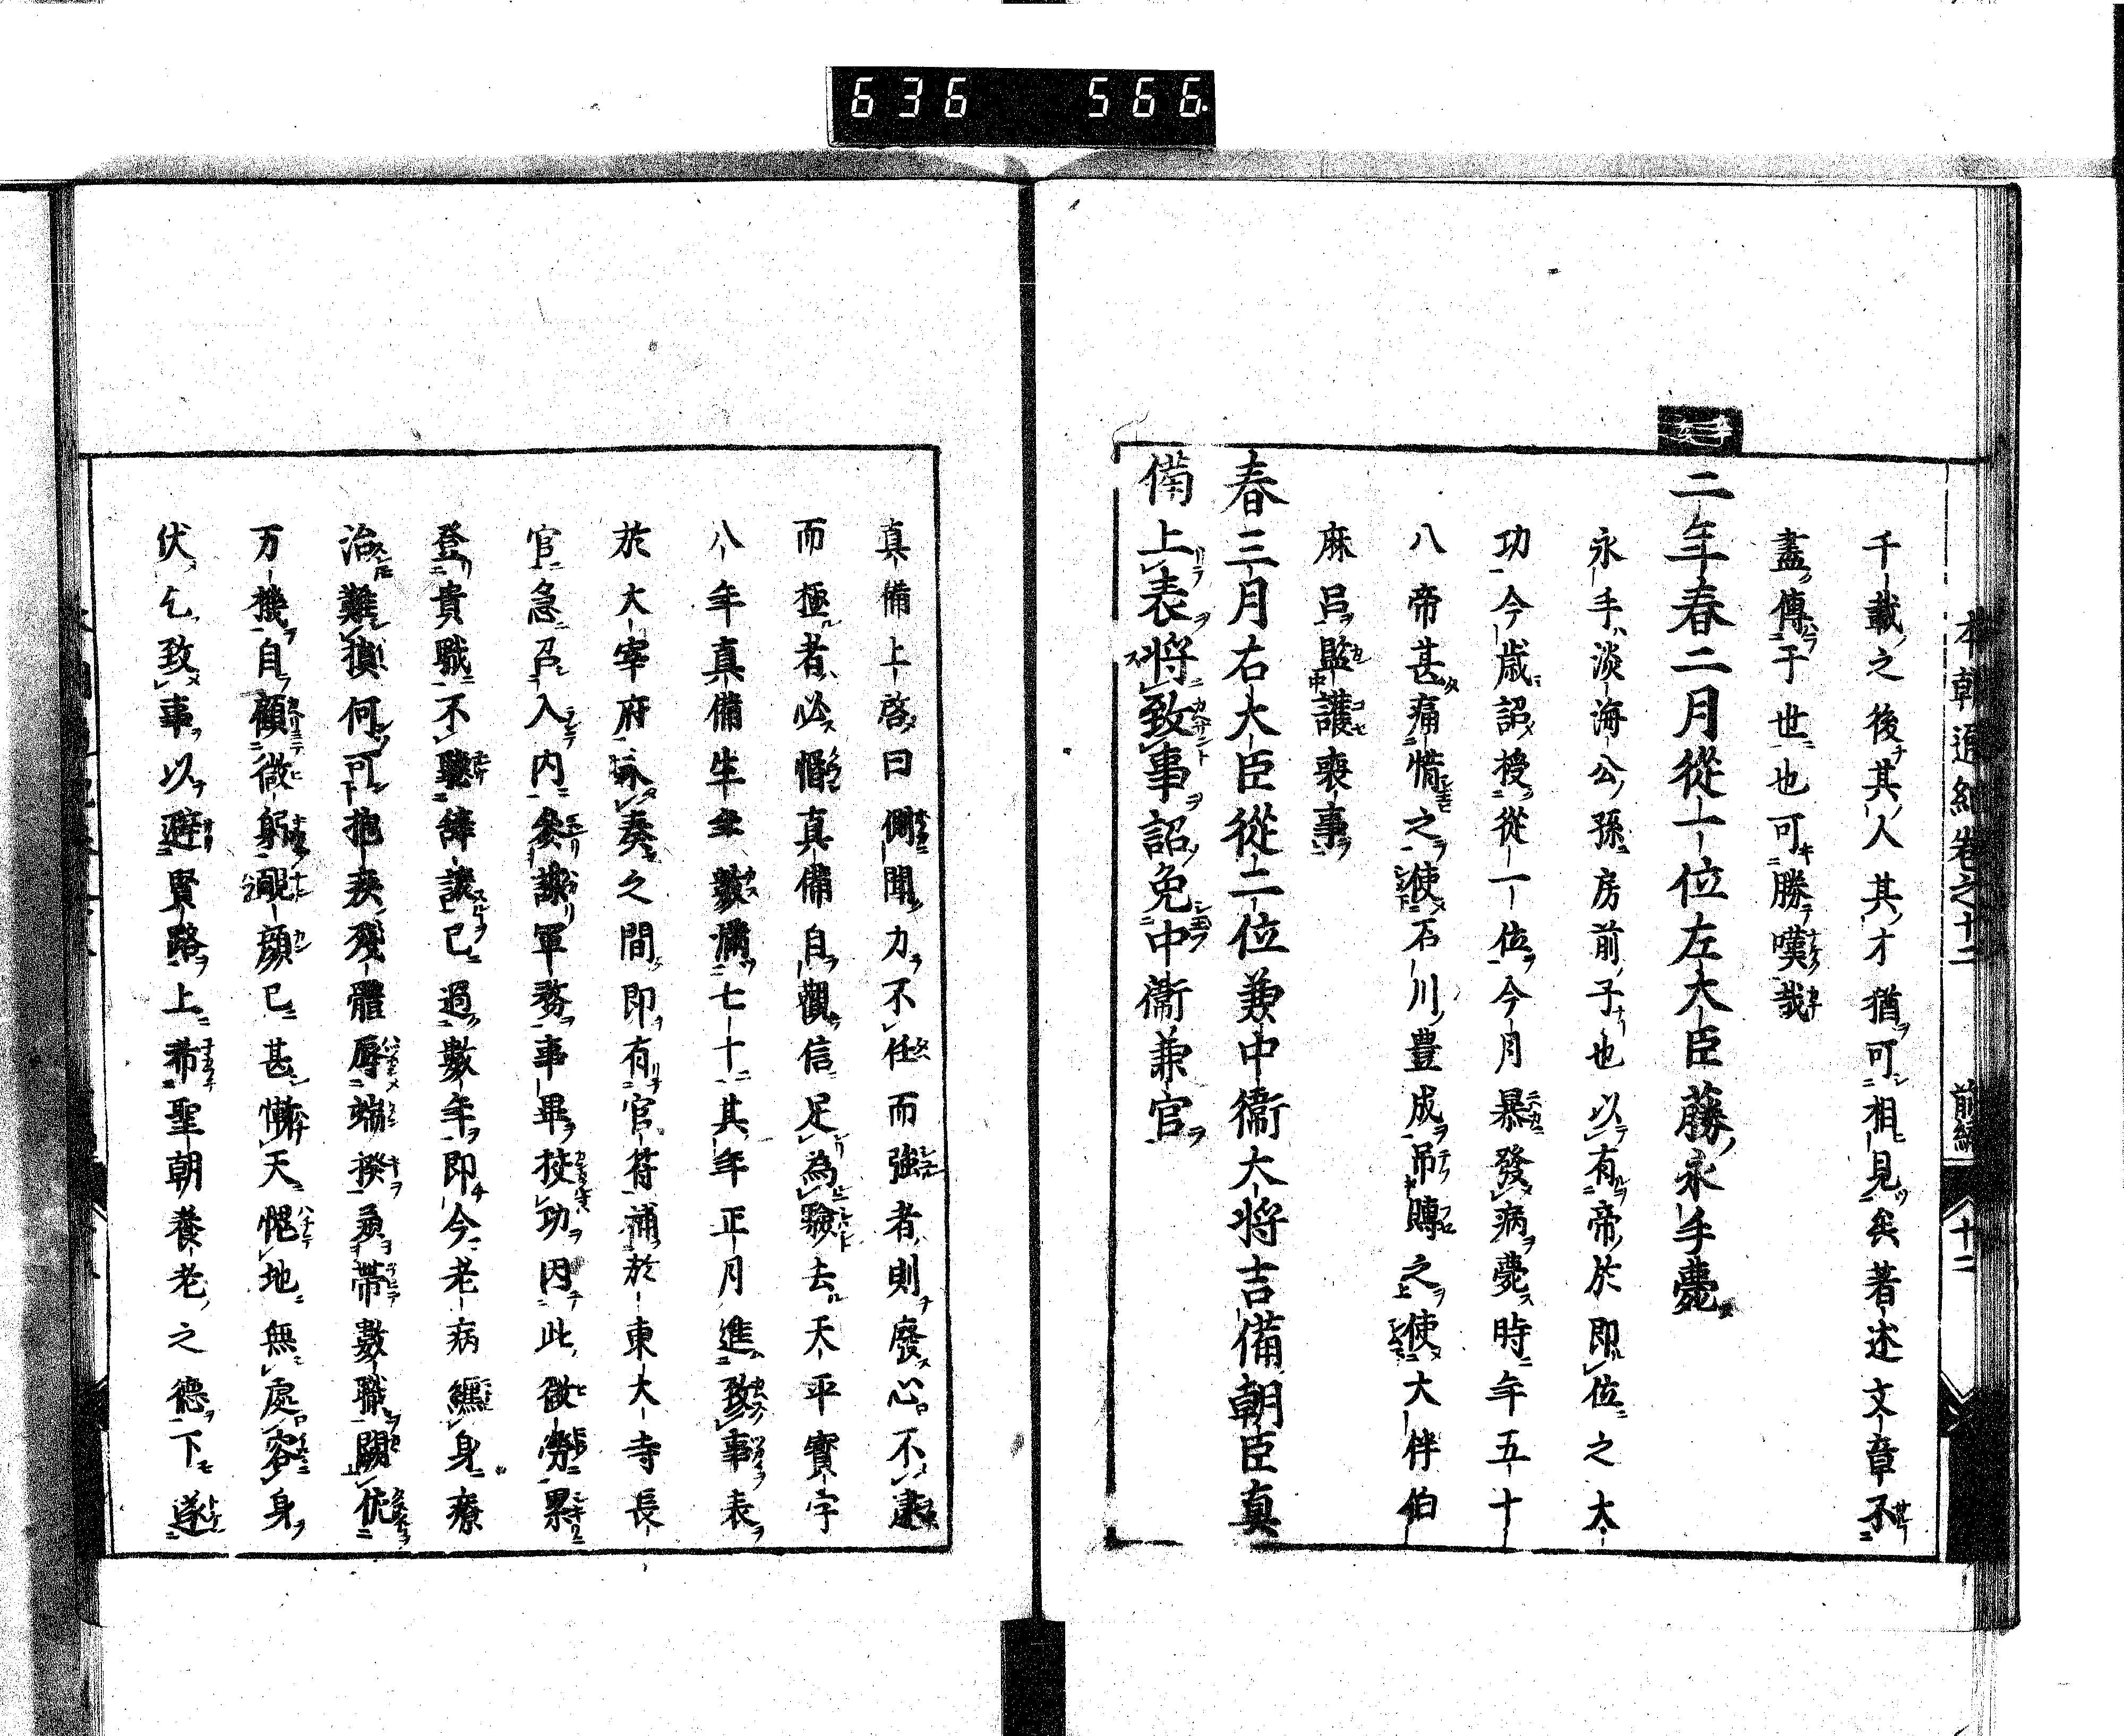 636 566
本朝通紀卷之十二 前編 十二
千載之後其人其才猶可相見矣著述文章不
盡傳于世也可勝嘆哉
辛亥
二年春二月從一位左大臣藤永手薨
永手淡海公孫房前子也以有帝於即位之大
功今歲詔授從一位今月暴發病薨時年五十
八帝甚痛惜之使石川豊成吊賻之使大伴伯
麻呂監護喪事
春三月右大臣從二位兼中衞大將吉備朝臣真
備上表將致事詔免中衞兼官
真備上啓曰側聞力不任而強者則廢心不逮
而極者必惛真備自觀信足為驗去天平寶字
八年真備生年數滿七十其年正月進致事表
於大宰府未奏之間即有官符補於東大寺長
官急召入內參謀軍務事畢挍功因此微勞累
登貴職不聽辭讓已過數年即今老病纏身療
治難損何可抱疾殘體辱端揆兼帶數職闕佐
万機自顧微躬靦顔已甚慚天愧地無處容身
伏乞致事以避賢路上希聖朝養老之德下遂